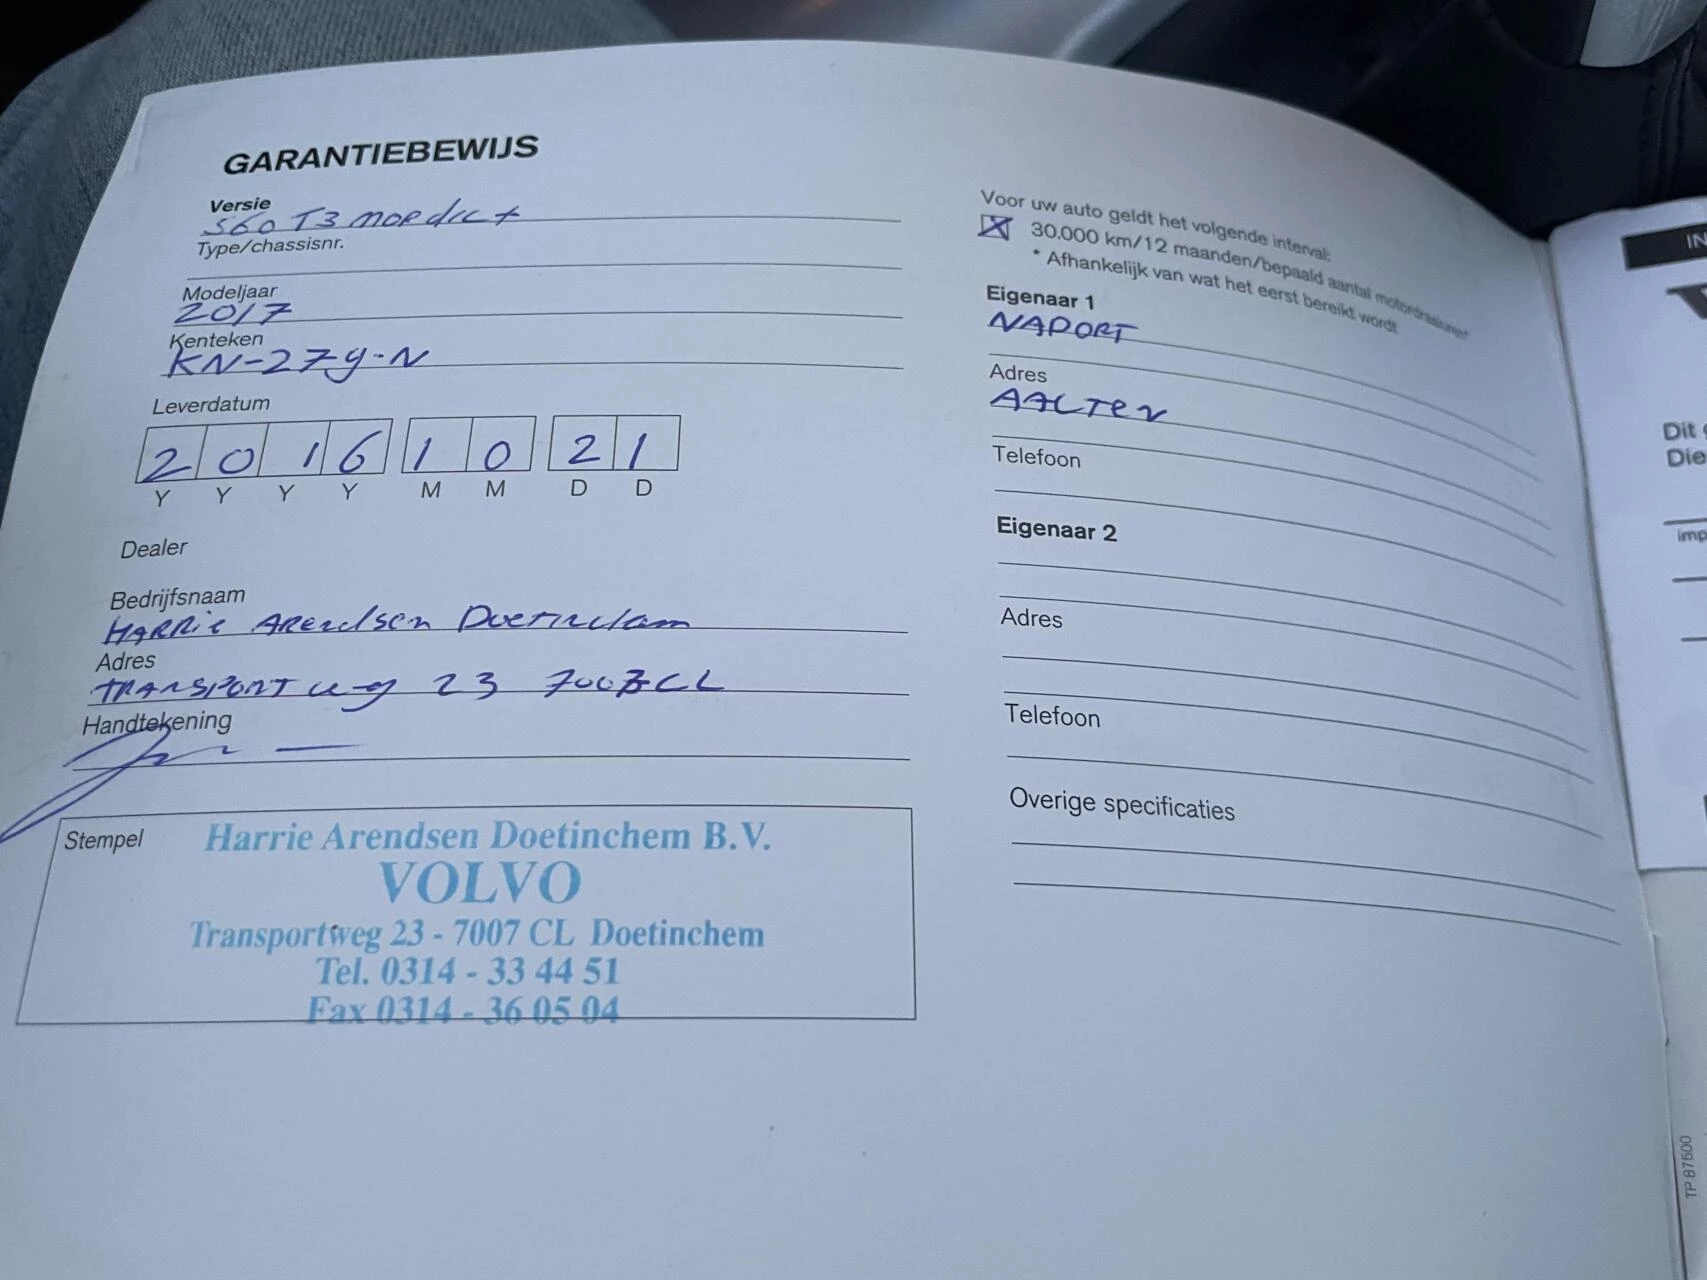 GARANTIEBEWIJS
Versie
S60 T3 NORDIC +
Type/chassisnr.
Modeljaar
2017
Kenteken
KN-279-N
Leverdatum
2 0 1 6 1 0 2 1
Y Y Y Y M M D D
Dealer
Bedrijfsnaam
HARRIE ARENDSEN DOETINCHEM
Adres
TRANSPORTWEG 23 7007 CL
Handtekening
Stempel
Harrie Arendsen Doetinchem B.V.
VOLVO
Transportweg 23 - 7007 CL Doetinchem
Tel. 0314 - 33 44 51
Fax 0314 - 36 05 04
Voor uw auto geldt het volgende interval:
30.000 km/12 maanden/bepaald aantal motordraaiuren*
* Afhankelijk van wat het eerst bereikt wordt
Eigenaar 1
NAPORT
Adres
AALTEN
Telefoon
Eigenaar 2
Adres
Telefoon
Overige specificaties
IN
Dit
Die
imp
TP 87600